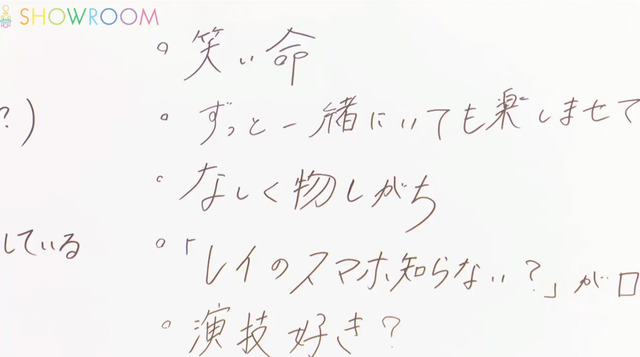 SHOWROOM
。笑い命
?)
。ずっと一緒にいても楽しませて
。なしく物しがち
している
。「レイのスマホ知らない?」が口
。演技好き?